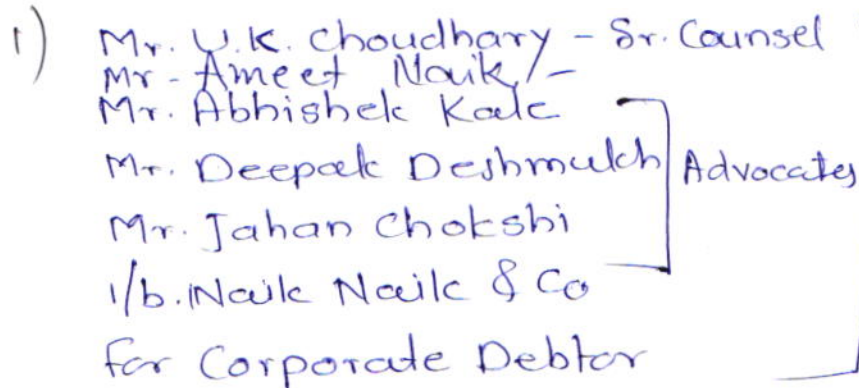 1) Mr. U.K. Choudhary - Sr. Counsel
Mr - Ameet Naik/-
Mr. Abhishek Kale
Mr. Deepak Deshmukh Advocates
Mr. Jahan Chokshi
i/b. Naik Naik & Co
for Corporate Debtor